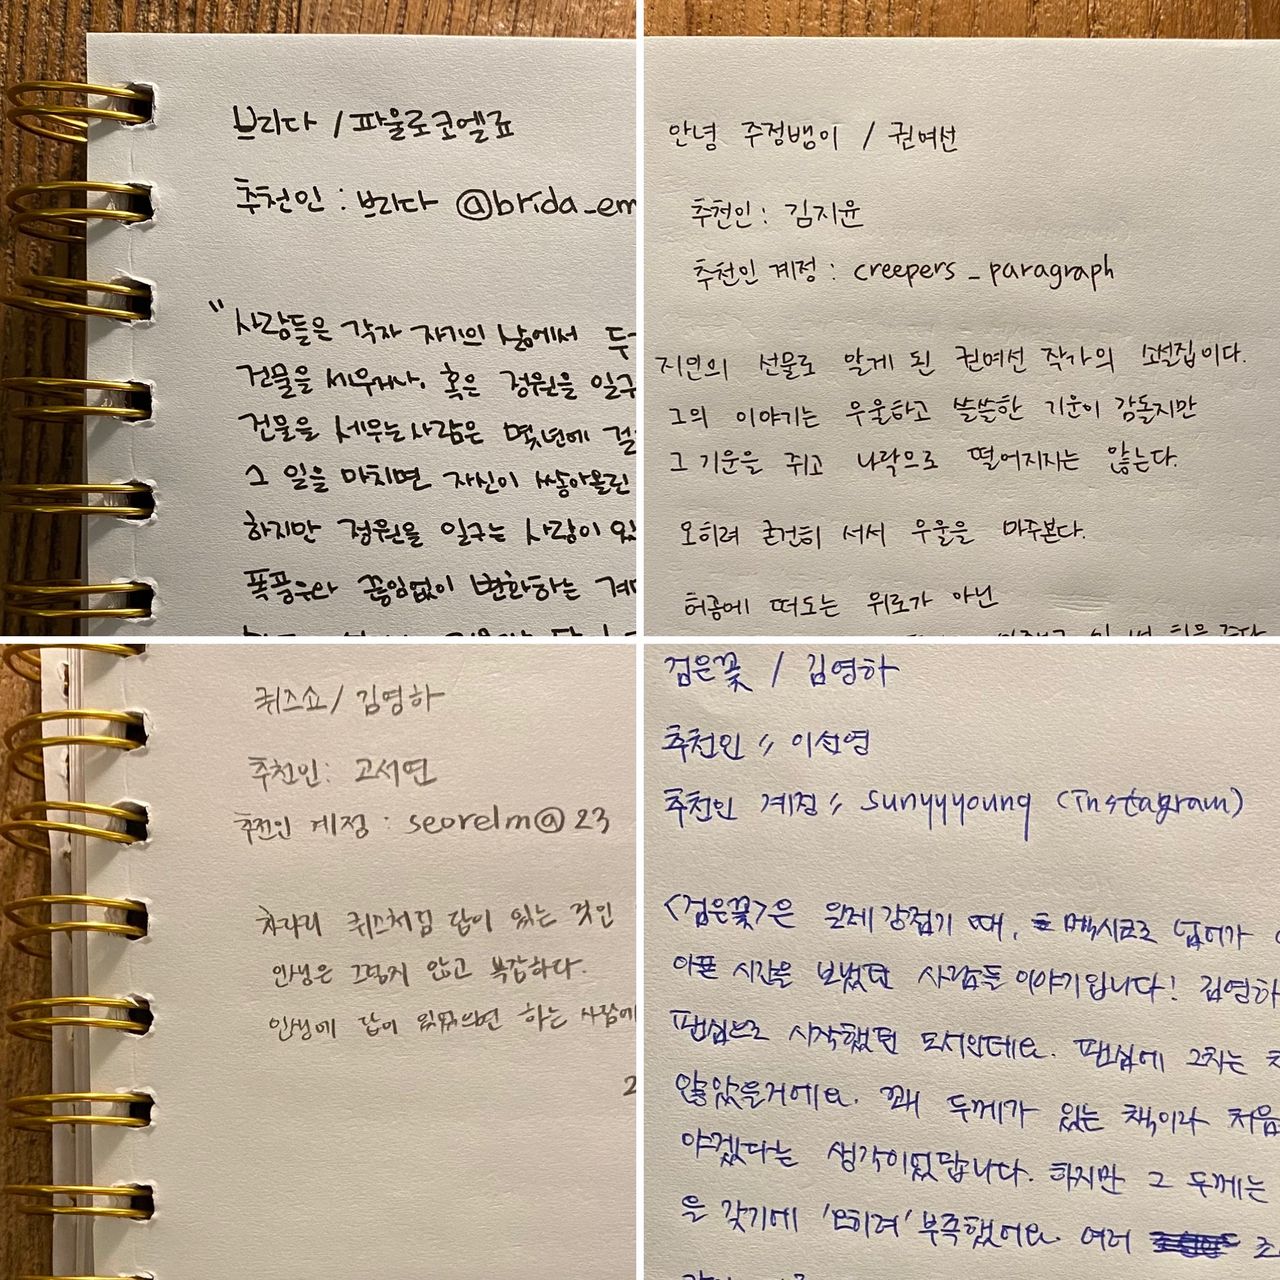 브리다 / 파울로코엘료
추천인 : 브리다 @brida_em
"사람들은 각자 자기의 삶에서 두
건물을 세우거나, 혹은 정원을 일구
건물을 세우는 사람은 몇년에 걸
그 일을 마치면 자신이 쌓아올린
하지만 정원을 일구는 사람이 있
폭풍우와 끊임없이 변화하는 계
안녕 주정뱅이 / 권여선
추천인 : 김지윤
추천인 계정 : creepers_paragraph
지인의 선물로 알게 된 권여선 작가의 소설집이다.
그의 이야기는 우울하고 쓸쓸한 기운이 감돌지만
그 기운을 쥐고 나락으로 떨어지지는 않는다.
오히려 굳건히 서서 우울을 마주본다.
허공에 떠도는 위로가 아닌
퀴즈쇼 / 김영하
추천인 : 고서연
추천인 계정 : seorelm@23
차라리 퀴즈처럼 답이 있는 것인
인생은 그렇게 않고 복잡하다.
인생에 답이 있었으면 하는 사람에
2
검은꽃 / 김영하
추천인 // 이선영
추천인 계정 // sunyyyoung (instagram)
<검은꽃>은 일제강점기 때, 멕시코로 넘어가
아픈 시간을 보냈던 사람들 이야기입니다! 김영하
팬심으로 시작했던 도서인데요. 팬심에 그치는
않았을거에요. 꽤 두께가 있는 책이라 처음
야겠다는 생각이었답니다. 하지만 그 두께는
을 갖기에 '오히려' 부족했어요. 여러